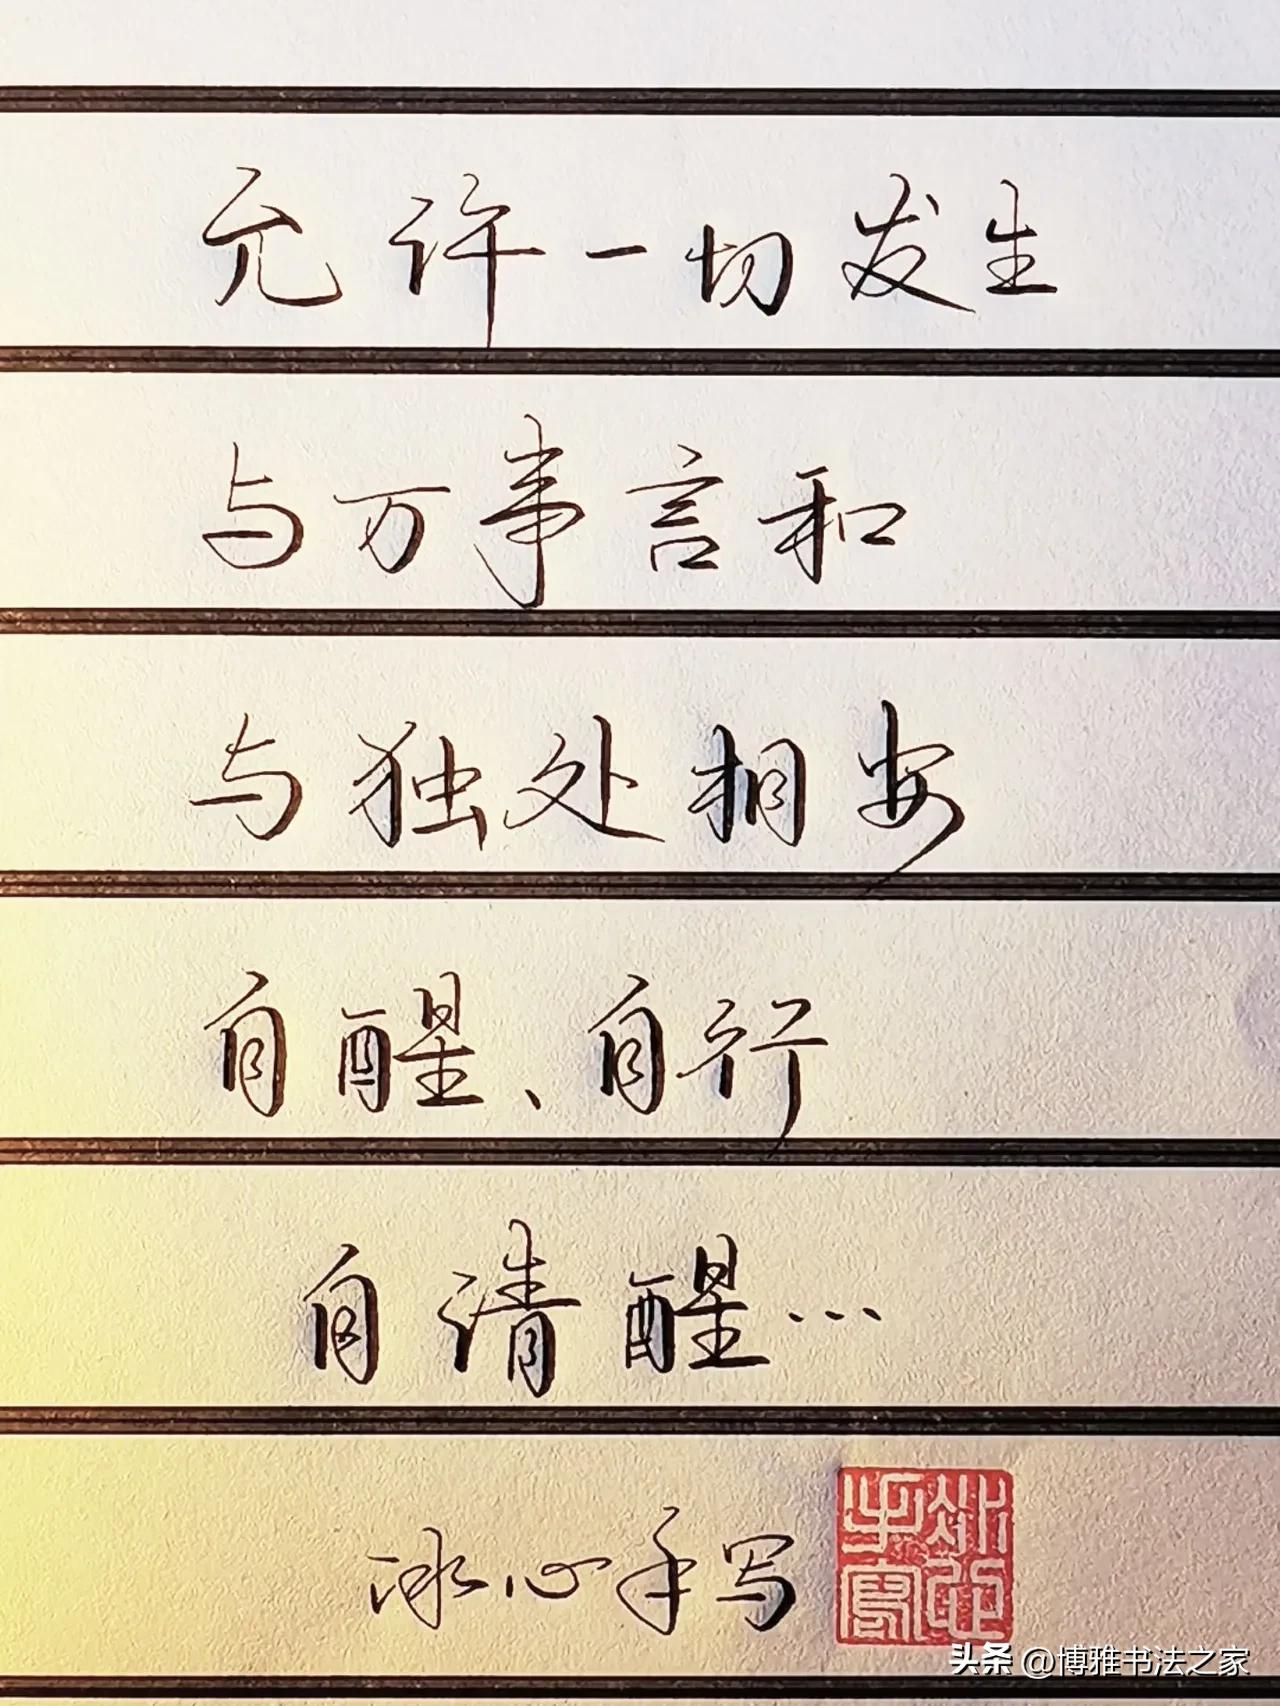 允许一切发生
与万事言和
与独处相安
自醒、自行
自清醒…
冰心手写
冰心手写
头条 @博雅书法之家